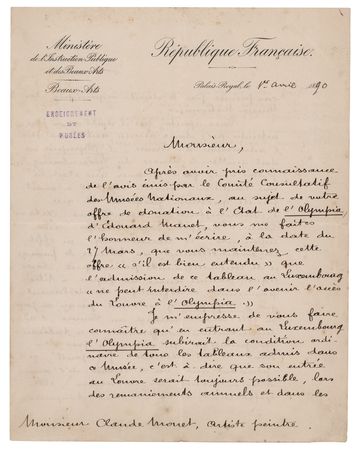 Ministère
de l'Instruction Publique
et des Beaux-Arts
Beaux-Arts
ENSEIGNEMENT
ET
MUSÉES
République Française.
Palais-Royal, le 1er avril 1890
Monsieur,
Après avoir pris connaissance
de l'avis émis par le Comité Consultatif
des Musées Nationaux, au sujet de votre
offre de donation à l'Etat de l'Olympia
d'Edouard Manet, vous me faites
l'honneur de m'écrire, à la date du
27 Mars, que vous maintenez cette
offre « s'il est bien entendu » que
l'admission de ce tableau au Luxembourg
« ne peut interdire dans l'avenir l'accès
du Louvre à l'Olympia. »
Je m'empresse de vous faire
connaître qu'en entrant au Luxembourg
l'Olympia subirait la condition ordi-
naire de tous les tableaux admis dans
ce Musée, c'est à dire que son entrée
au Louvre serait toujours possible, lors
des remaniements annuels et dans les
Monsieur Claude Monet, artiste peintre.